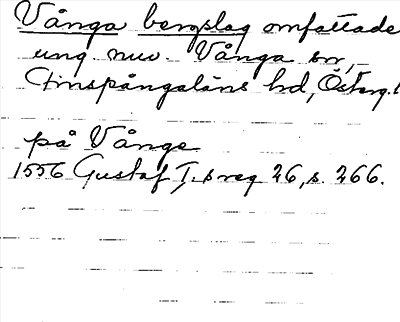 Vånga bergslag omfattade
ung nuv. Vånga sn,
Finspångaläns hd, Österg.l
på Vånge
1556 Gustaf I:s reg 26, s. 266.